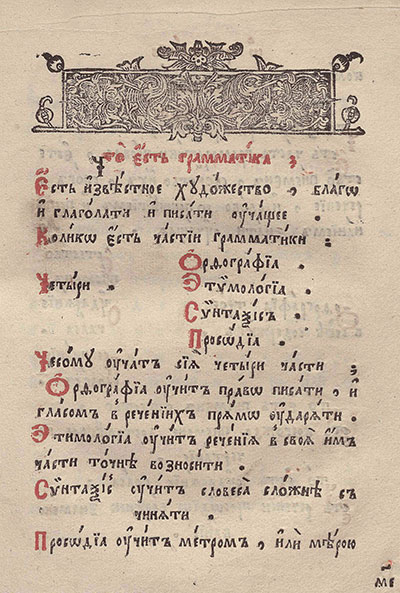 Что̀ є҆́сть грамма́тїка ;
Є҆́сть и҆звѣ́стное хꙋдо́жество , бла́гѡ
и҆ глаго́лати и҆ писа́ти оу҆ча́щее .
Коли́кѡ є҆́сть часті́й грамма́тїки ;
Ѻ҆рѳогра́фїа .
Четы́ри . Э҆тѷмоло́гїа .
Сѷ́нтаѯїсъ .
Просѡ́дїа .
Чесомꙋ̀ оу҆ча́тъ сїѧ̑ четы́ри ча́сти ;
Ѻ҆рѳогра́фїа оу҆чи́тъ пра́вѡ писа́ти , и҆
гла́сомъ в рече́нїихъ прѧ́мѡ оу҆дарѧ́ти .
Э҆тимоло́гїа оу҆чи́тъ рече́нїѧ в своѧ̑ и҆̀мъ
ча́сти то́чнѣ возноси́ти .
Сѷ́нтаѯїсъ оу҆чи́тъ словеса̀ сло́жнѣ съ
чинѧ́ти .
Просѡ́дїа оу҆чи́тъ ме́тромъ , и҆лѝ мѣ́рою